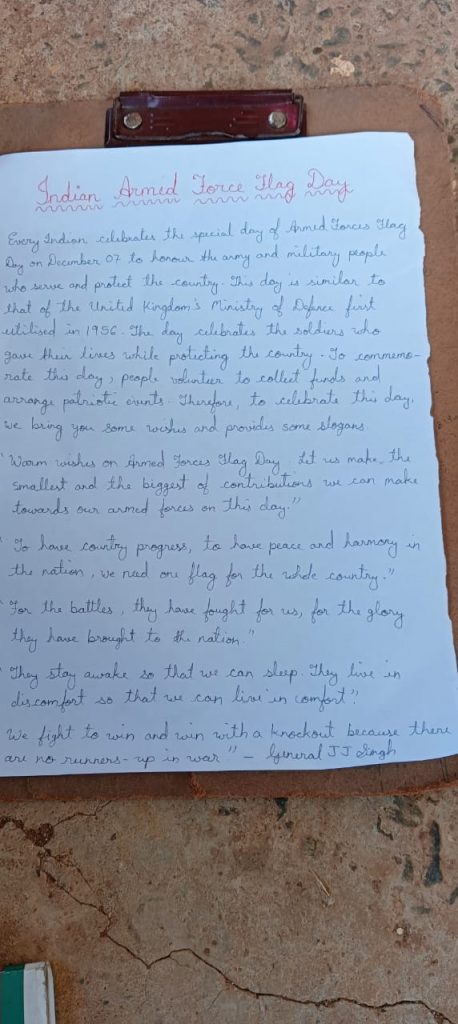 Indian Armed Force Flag Day
Every Indian celebrates the special day of Armed Forces Flag
Day on December 07 to honour the army and military people
who serve and protect the country. This day is similar to
that of the United Kingdom's Ministry of Defence first
utilised in 1956. The day celebrates the soldiers who
gave their lives while protecting the country. To commemo-
rate this day, people volunteer to collect funds and
arrange patriotic events. Therefore, to celebrate this day,
we bring you some wishes and provides some slogans
"Warm wishes on Armed Forces Flag Day. Let us make the
smallest and the biggest of contributions we can make
towards our armed forces on this day."
"To have country progress, to have peace and harmony in
the nation, we need one flag for the whole country."
"For the battles, they have fought for us, for the glory
they have brought to the nation."
"They stay awake so that we can sleep. They live in
discomfort so that we can live in comfort".
We fight to win and win with a knockout because there
are no runners-up in war" - General JJ Singh